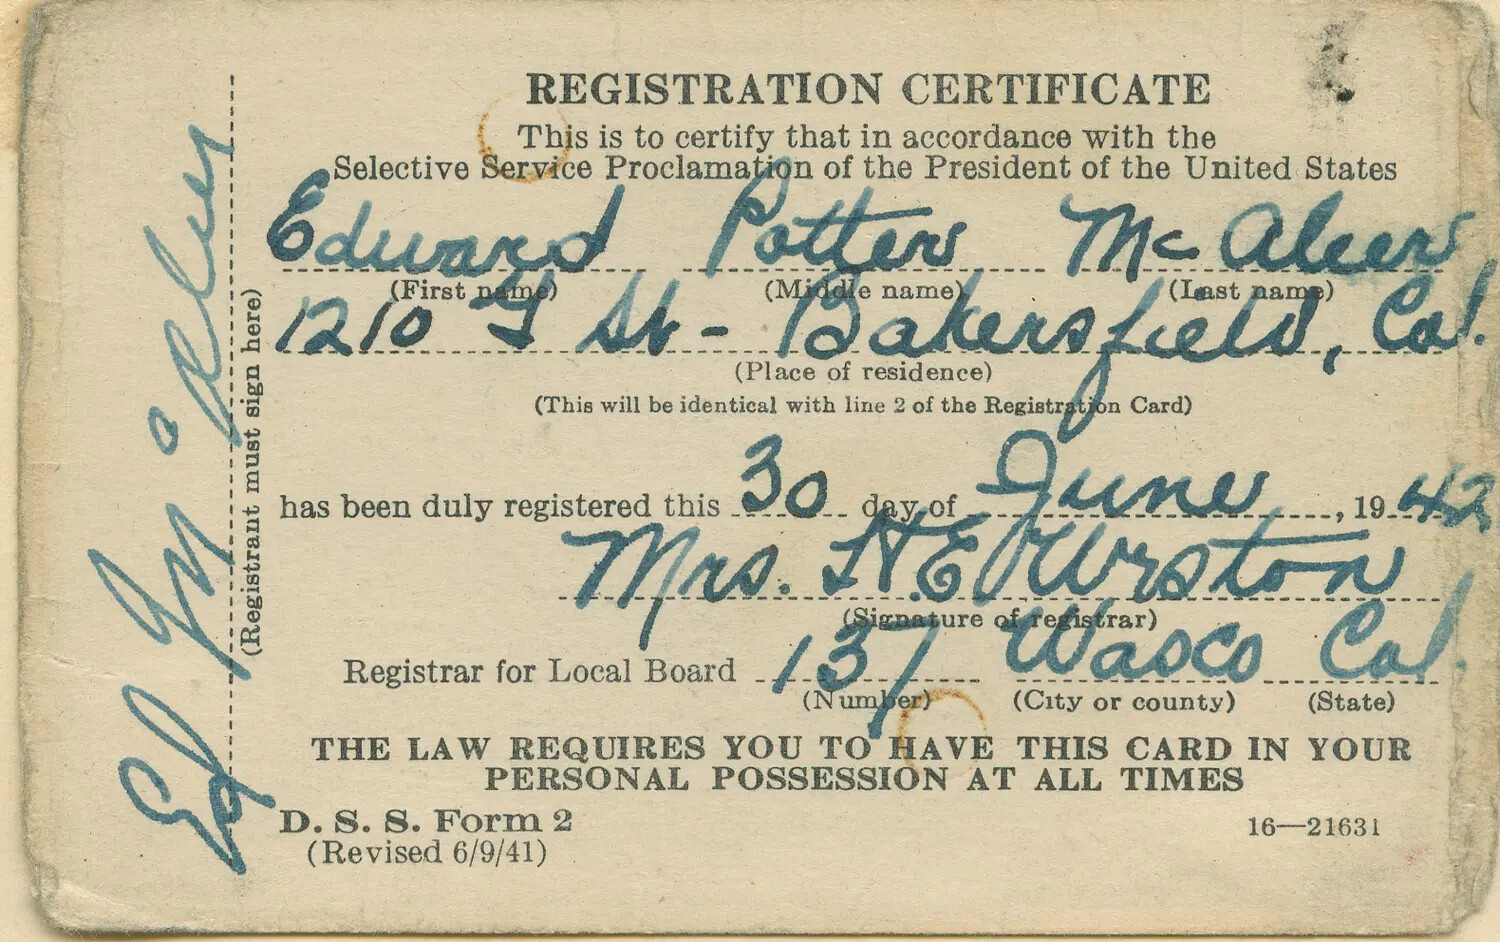 REGISTRATION CERTIFICATE
This is to certify that in accordance with the
Selective Service Proclamation of the President of the United States
Edward Potter McAleer
(First name) (Middle name) (Last name)
1210 F St - Bakersfield, Cal.
(Place of residence)
(This will be identical with line 2 of the Registration Card)
has been duly registered this 30 day of June, 1942
Mrs. H. E. Wrston
(Signature of registrar)
Registrar for Local Board 137 Wasco Cal.
(Number) (City or county) (State)
THE LAW REQUIRES YOU TO HAVE THIS CARD IN YOUR
PERSONAL POSSESSION AT ALL TIMES
D. S. S. Form 2
(Revised 6/9/41)
16—21631
Ed McAleer
(Registrant must sign here)